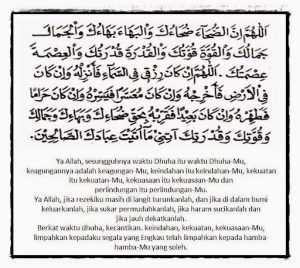 اَللّٰهُمَّ اِنَّ الضُّحَآءَ ضُحَاءُكَ وَالْبَهَاءَ بَهَاءُكَ وَالْجَمَالَ
جَمَالُكَ وَالْقُوَّةَ قُوَّتُكَ وَالْقُدْرَةَ قُدْرَتُكَ وَالْعِصْمَةَ
عِصْمَتُكَ. اَللّٰهُمَّ اِنْ كَانَ رِزْقِى فِى السَّمَآءِ فَأَنْزِلْهُ وَاِنْ كَانَ
فِى اْلاَرْضِ فَأَخْرِجْهُ وَاِنْ كَانَ مُعَسَّرًا فَيَسِّرْهُ وَاِنْ كَانَ حَرَامًا
فَطَهِّرْهُ وَاِنْ كَانَ بَعِيْدًا فَقَرِّبْهُ بِحَقِّ ضُحَاءِكَ وَبَهَاءِكَ وَجَمَالِكَ
وَقُوَّتِكَ وَقُدْرَتِكَ آتِنِىْ مَآاَتَيْتَ عِبَادَكَ الصَّالِحِيْنَ.
Ya Allah, sesungguhnya waktu Dhuha itu waktu Dhuha-Mu,
keagungannya adalah keagungan-Mu, keindahan itu keindahan-Mu, kekuatan
itu kekuatan-Mu, kekuasaan itu kekuasaan-Mu dan
perlindungan itu perlindungan-Mu.
Ya Allah, jika rezekiku masih di langit turunkanlah, dan jika di dalam bumi
keluarkanlah, jika sukar permudahkanlah, jika haram sucikanlah dan
jika jauh dekatkanlah.
Berkat waktu dhuha, kecantikan, keindahan, kekuatan, kekuasaan-Mu,
limpahkan kepadaku segala yang Engkau telah limpahkan kepada hamba-
hamba-Mu yang soleh.